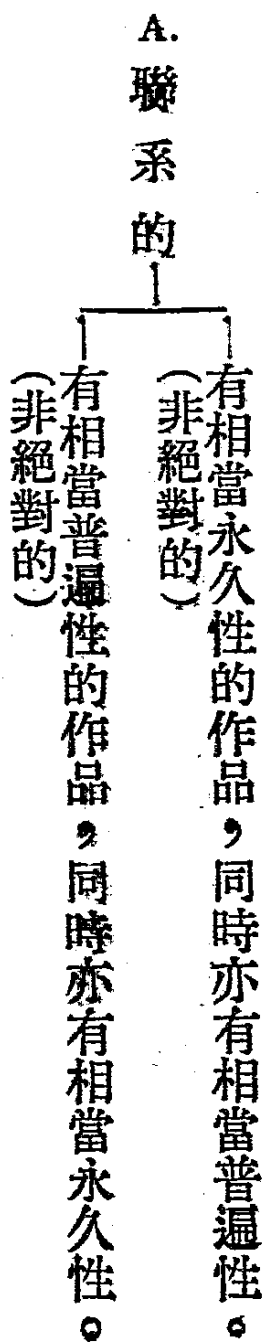 A. 聯系的
有相當永久性的作品，同時亦有相當普遍性。
（非絕對的）
有相當普遍性的作品，同時亦有相當永久性。
（非絕對的）